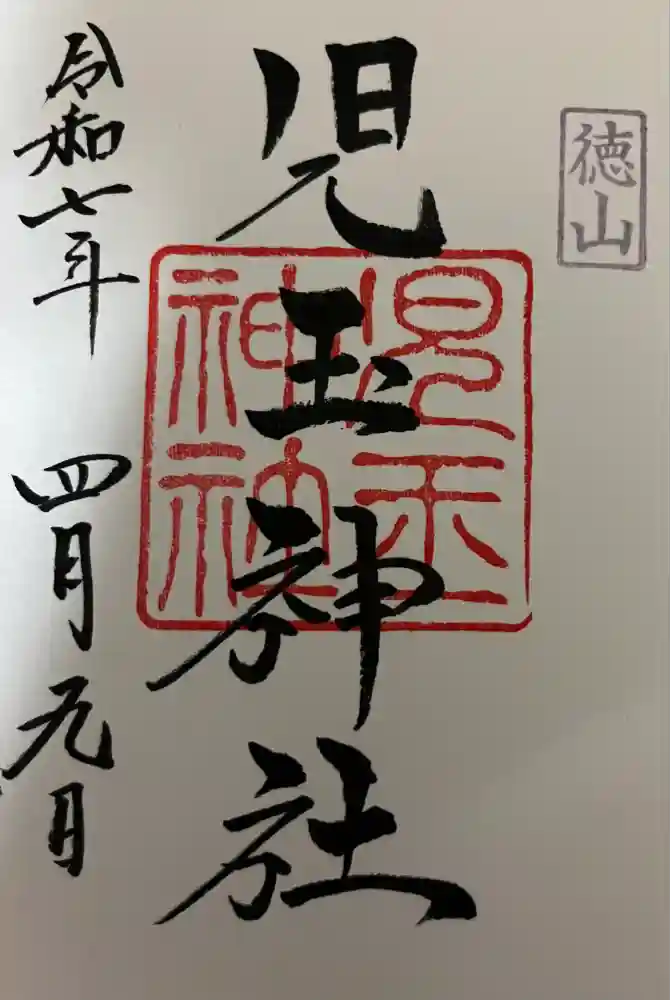 徳山
児玉神社
児玉
神社
令和七年 四月九日